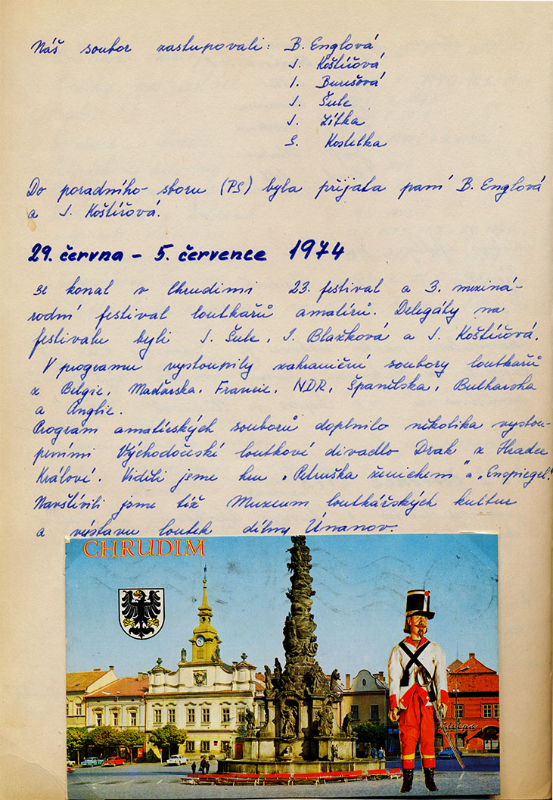 Náš soubor zastupovali: B. Englová
J. Koštířová
I. Burešová
J. Šule
J. Žitka
S. Kostelka
Do poradního sboru (PS) byla přijata paní B. Englová
a J. Koštířová.
29. června - 5. července 1974
se konal v Chrudimi 23. festival a 3. meziná-
rodní festival loutkářů amatérů. Delegáty na
festivalu byli J. Šule, I. Blažková a J. Koštířová.
V programu vystoupily zahraniční soubory loutkářů
z Belgie, Maďarska, Francie, NDR, Španělska, Bulharska
a Anglie.
Program amatérských souborů doplnilo několika vystou-
peními Východočeské loutkové divadlo Drak z Hradce
Králové. Viděli jsme hru „Petruška ženichem" a „Enspigel".
Navštívili jsme též Muzeum loutkářských kultur
a výstavu loutek dílny Únanov.
CHRUDIM